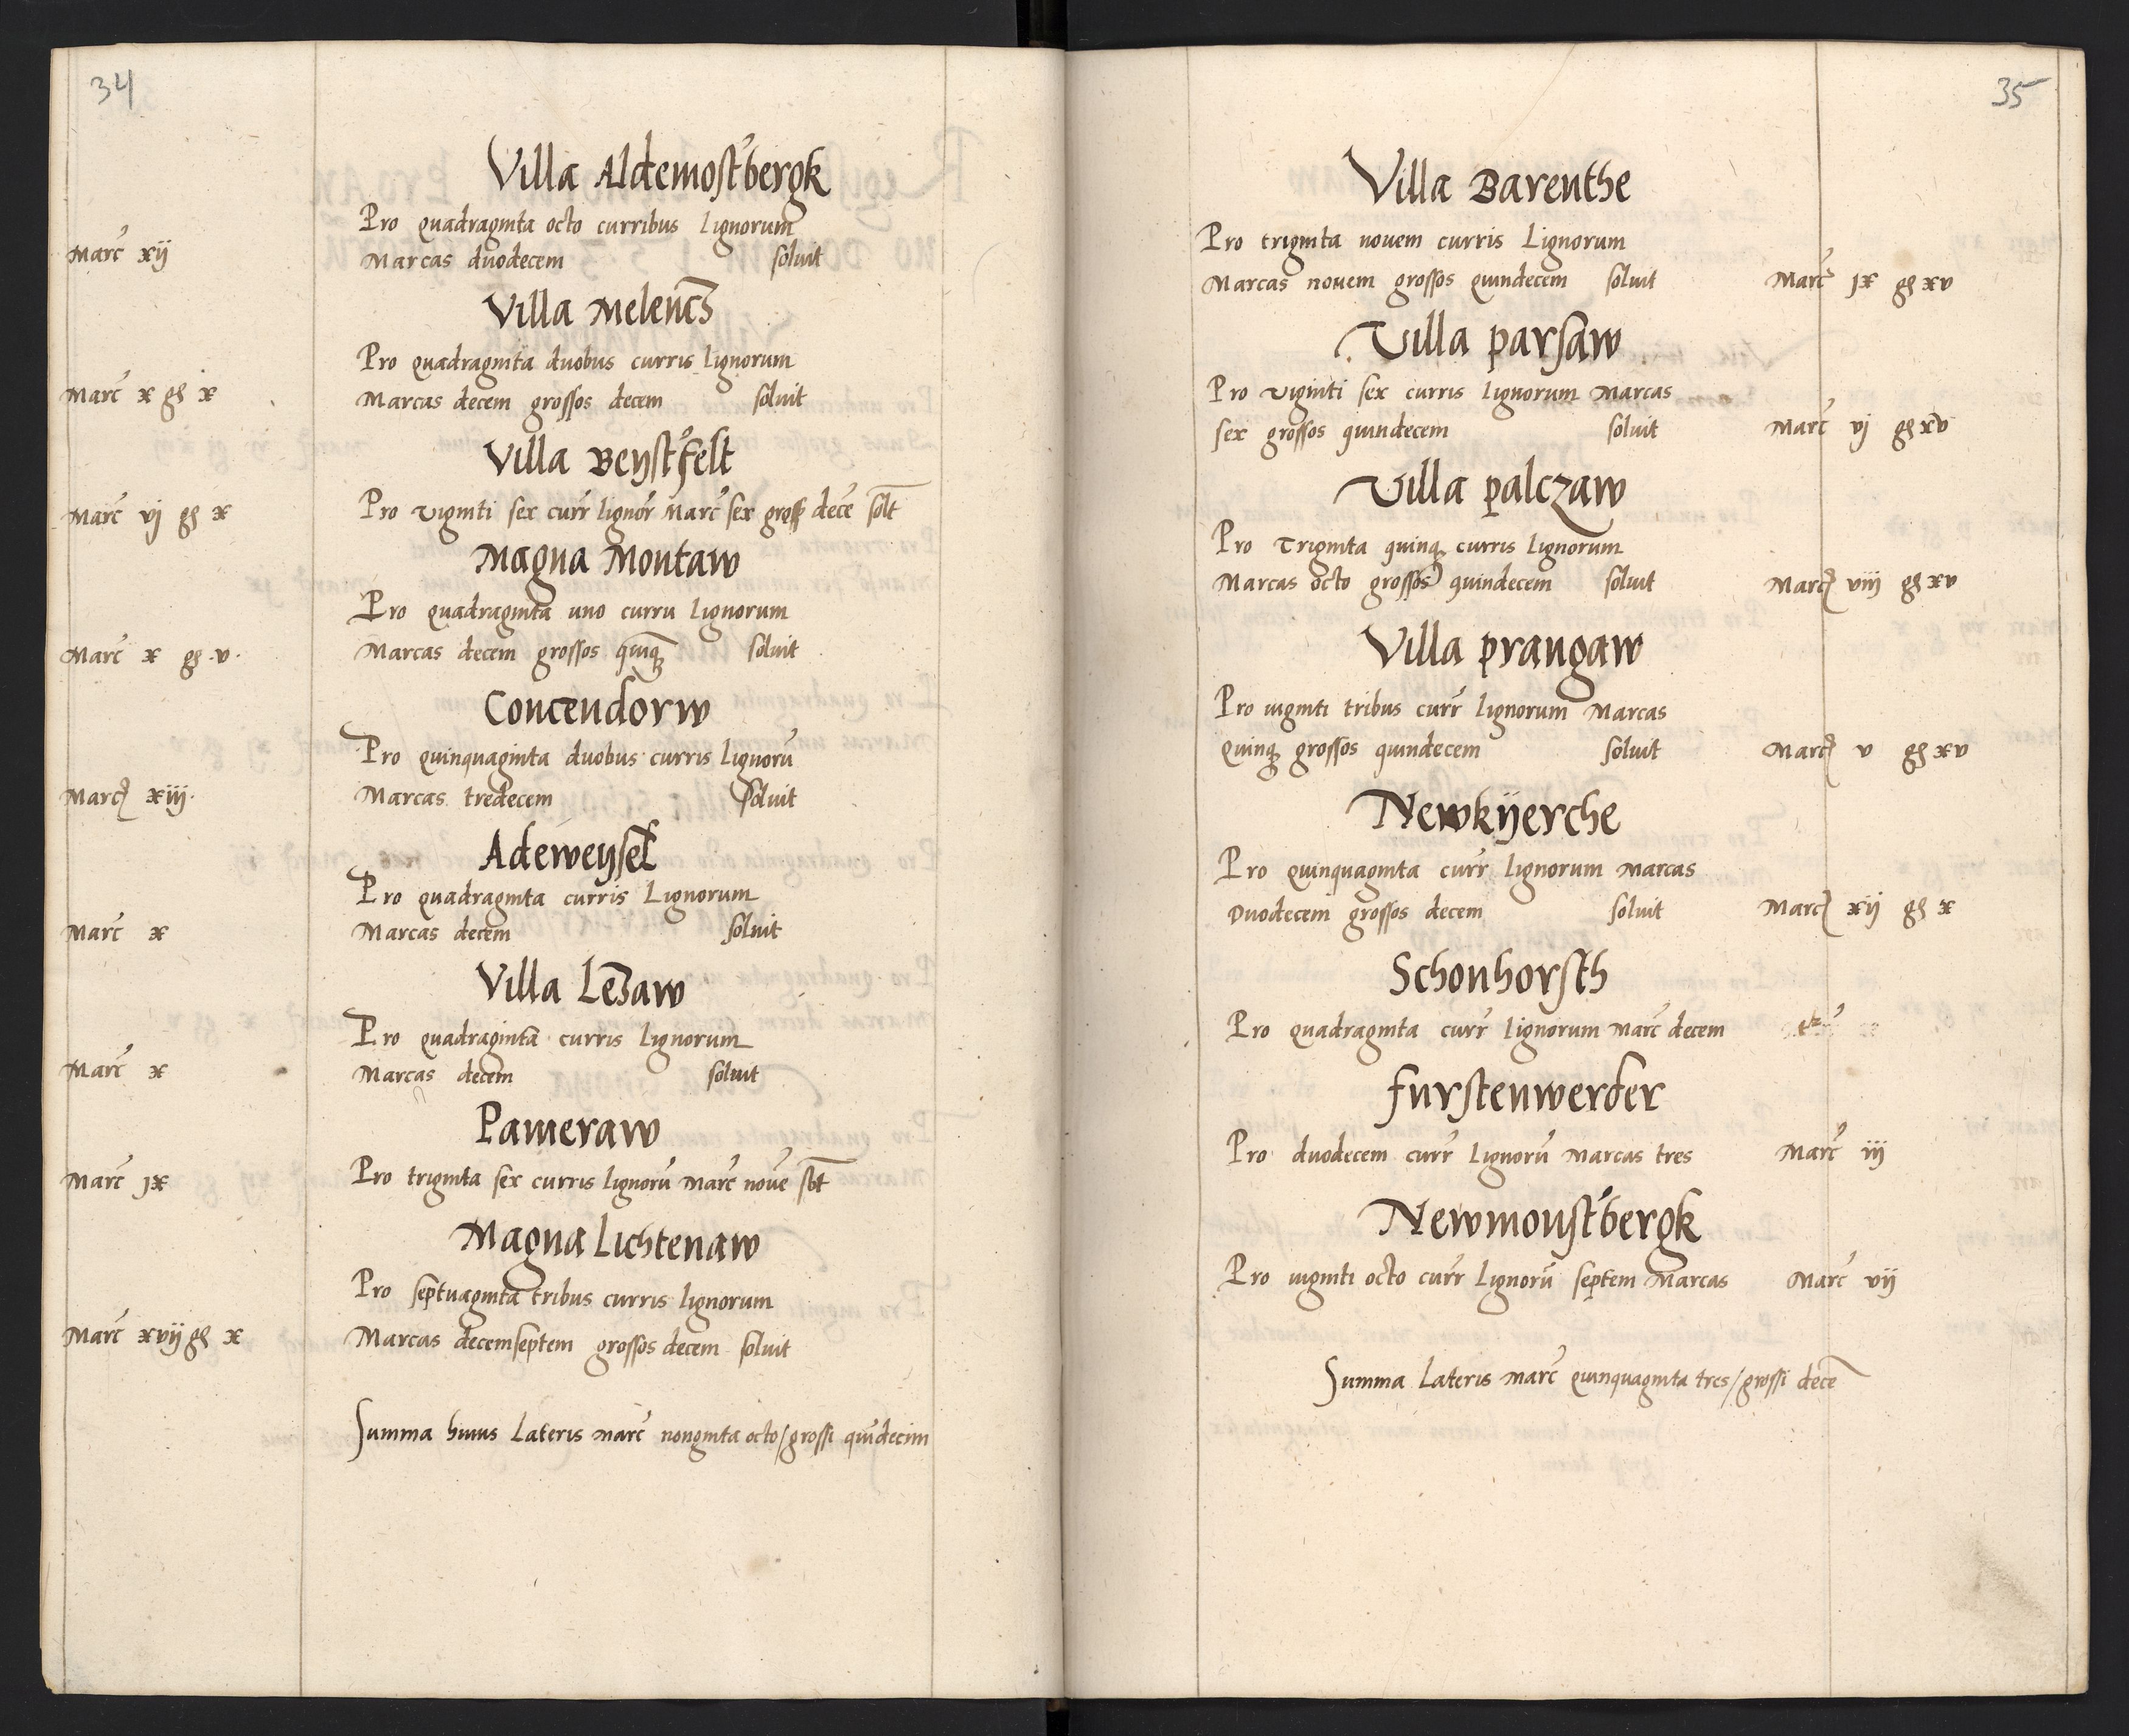 34
Villa Aldemost'bergk
Pro quadraginta octo curribus Lignorum
Marc xij
Marcas duodecem soluit
Villa Melencz
Pro quadraginta duobus curris lignorum
Marc x gs x
Marcas decem grossos decem soluit
Villa Beyst'felt
Marc vj gs x
Pro viginti sex curr lignor Marc sex gross dece solt
Magna Montaw
Pro quadraginta uno curru Lignorum
Marc x gs .v.
Marcas decem grossos quinq soluit
Concendorw
Pro quinquaginta duobus curris Lignoru
Marc xiij.
Marcas tredecem soluit
Adeweysel
Pro quadraginta curris Lignorum
Marc x
Marcas decem soluit
Villa Lezaw
Pro quadraginta curris Lignorum
Marc x
Marcas decem soluit
Pameraw
Marc jx
Pro triginta sex curris lignoru Marc nove solt
Magna Lichtenaw
Pro septuaginta tribus curris lignorum
Marc xvij gs x
Marcas decemseptem grossos decem soluit
Summa huius Lateris marc nonginta octo/grossi quidecim
35
Villa Barenthe
Pro triginta novem curris Lignorum
Marcas novem grossos quindecem soluit Marc jx gs xv
Villa parsaw
Pro viginti sex curris lignorum Marcas
sex grossos quindecem soluit Marc vj gs xv
Villa palczaw
Pro Triginta quinq curris lignorum
Marcas octo grossos quindecem soluit Marc viij gs xv
Villa prangaw
Pro viginti tribus curr lignorum Marcas
quinq grossos quindecem soluit Marc v gs xv
Newkyerche
Pro quinquaginta curr lignorum Marcas
Duodecem grossos decem soluit Marc xij gs x
Schonhorsth
Pro quadraginta curr lignorum Marc decem
furstenwerder
Pro duodecem curr Lignoru Marcas tres Marc iij
Newmonst'bergk
Pro viginti octo curr Lignoru septem Marcas Marc vij
Summa Lateris marc quinquaginta tres/grossi dece